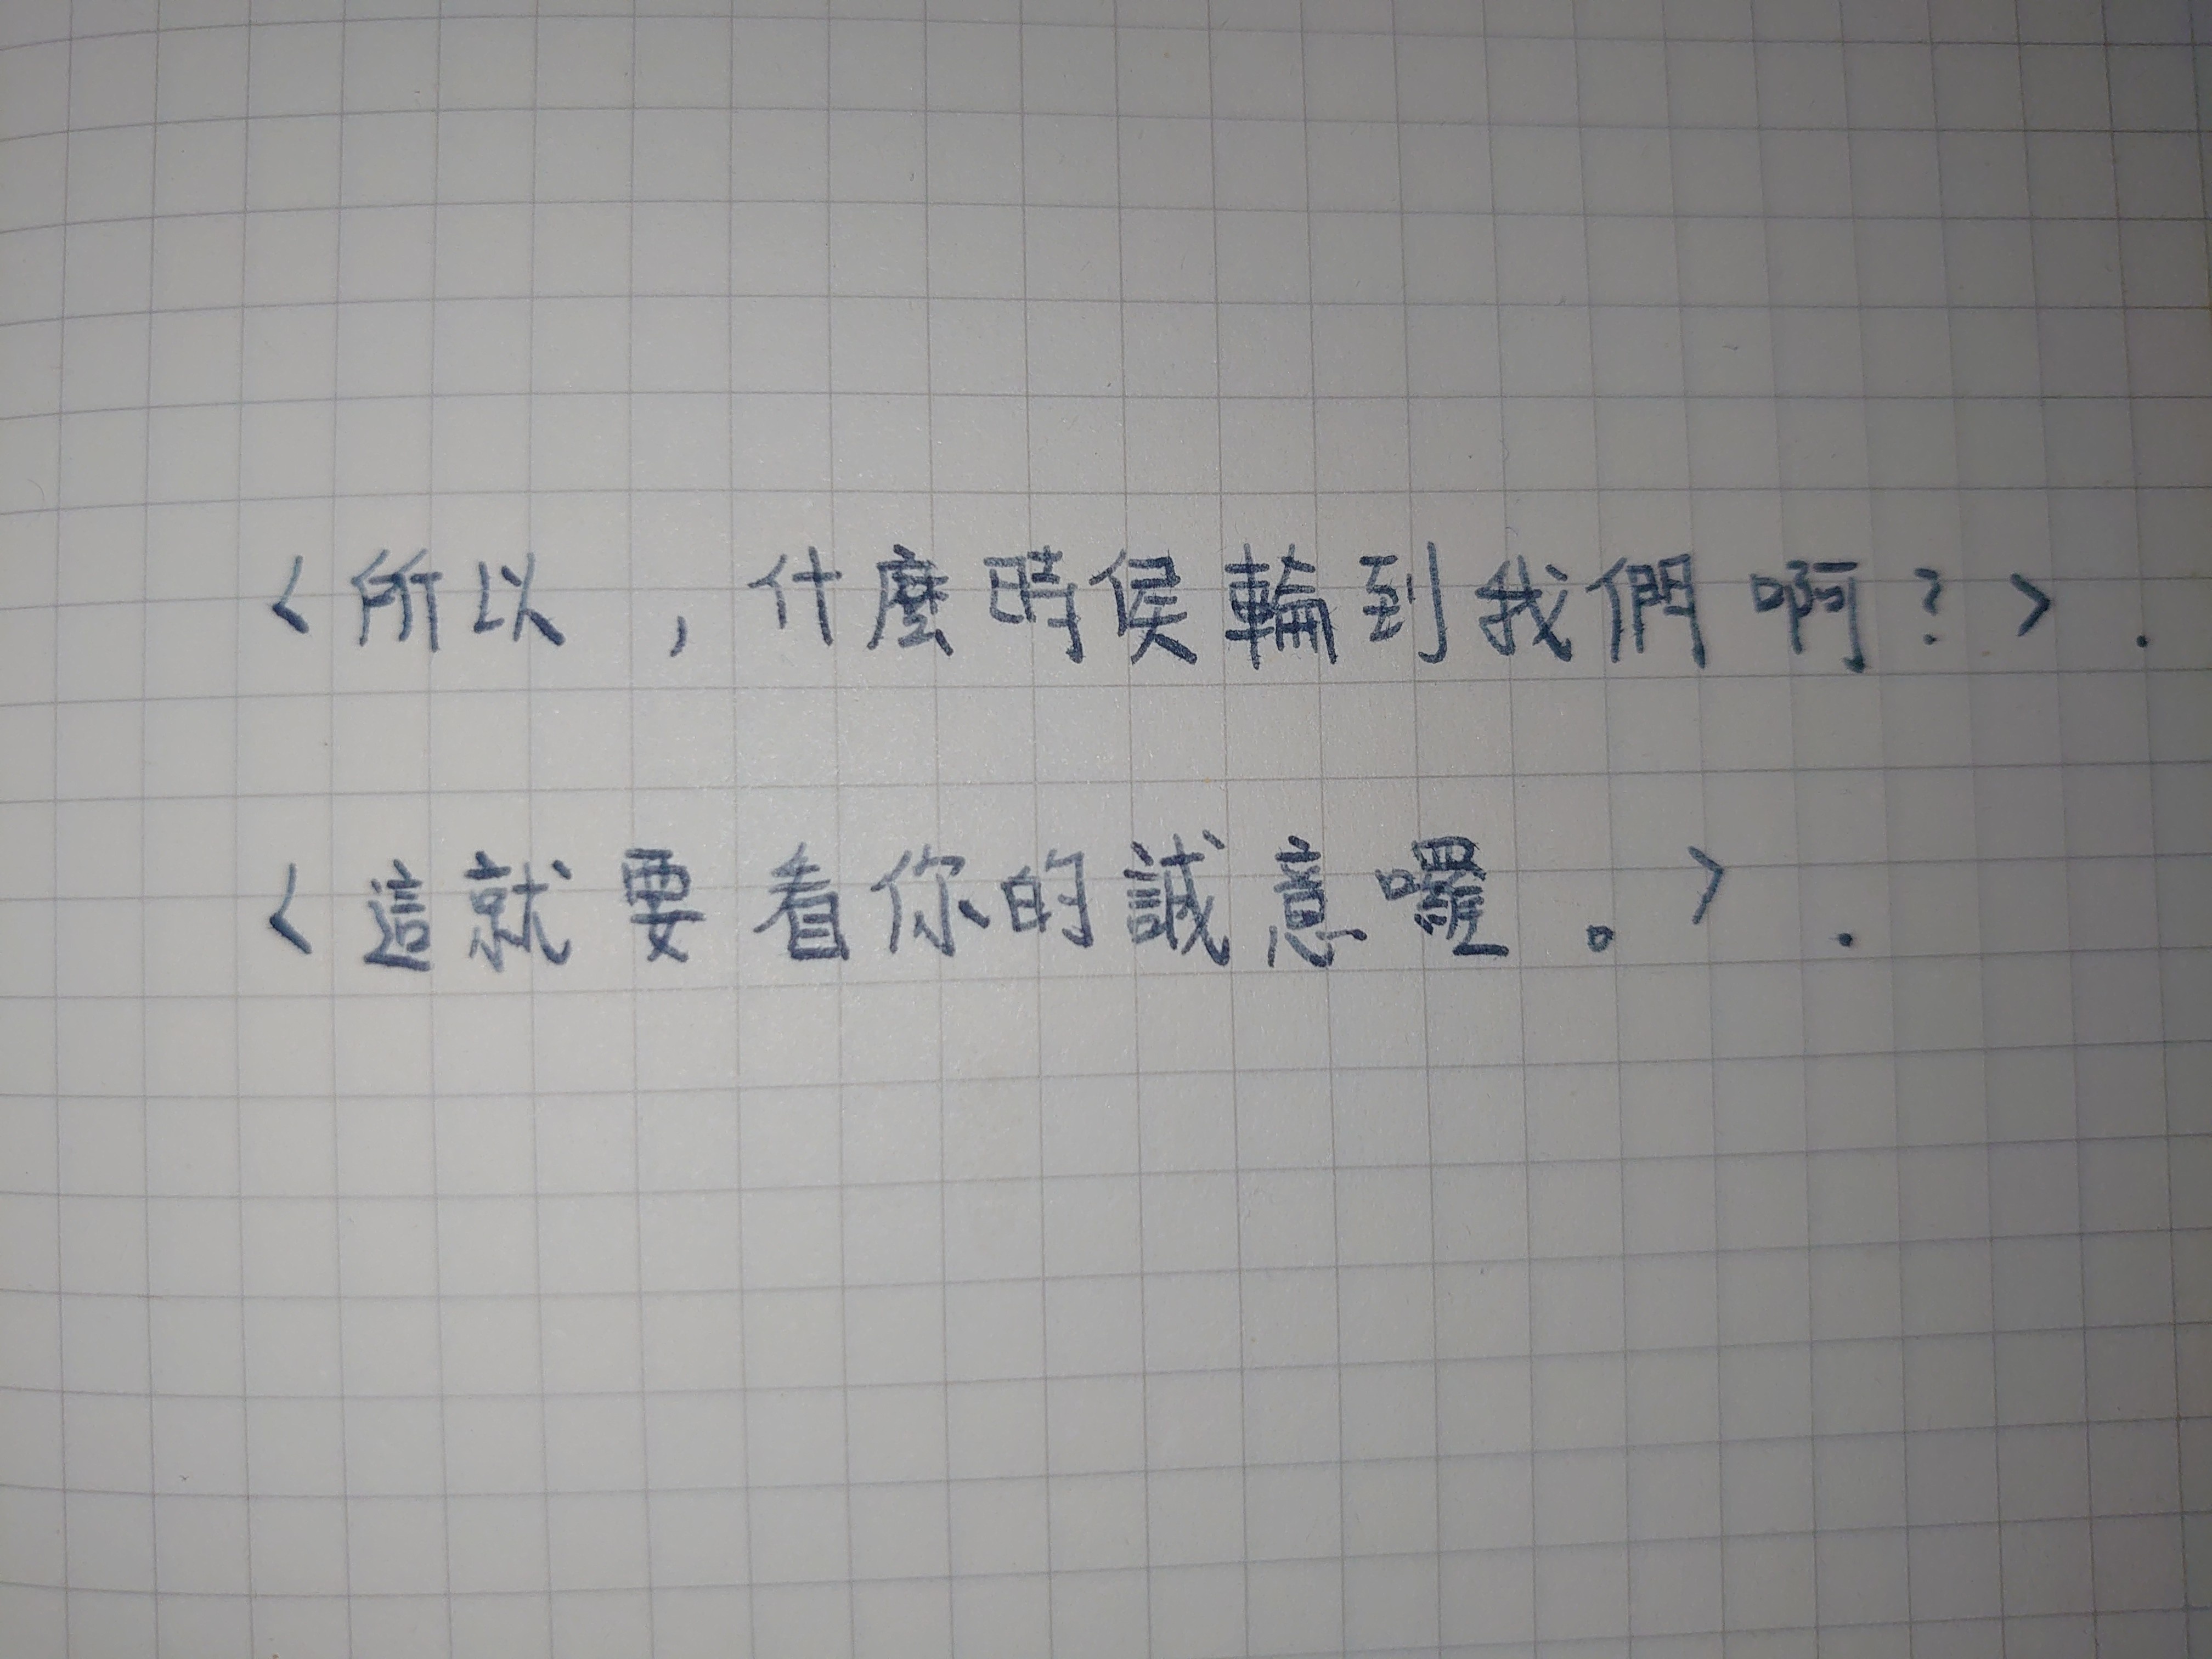 〈所以，什麼時侯輪到我們啊？〉.
〈這就要看你的誠意囉。〉.